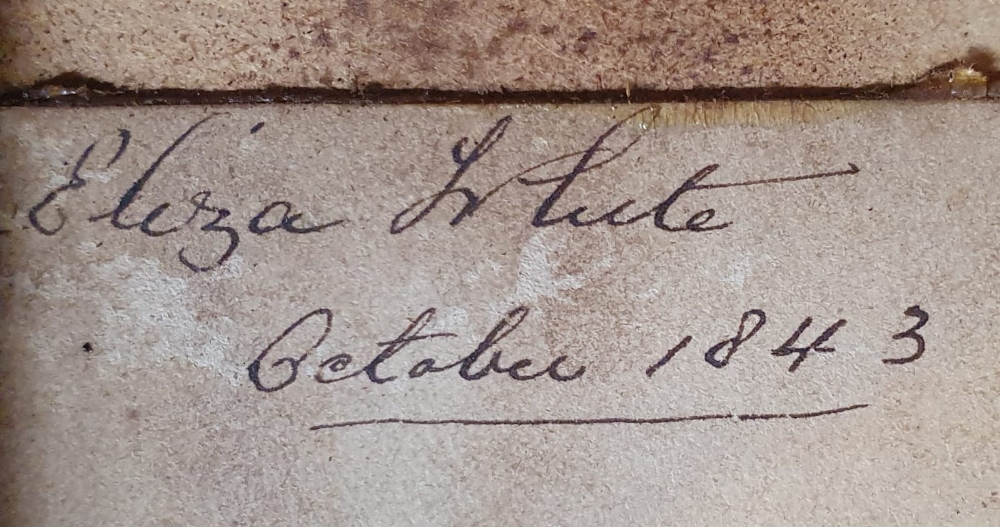 Eliza White
October 1843